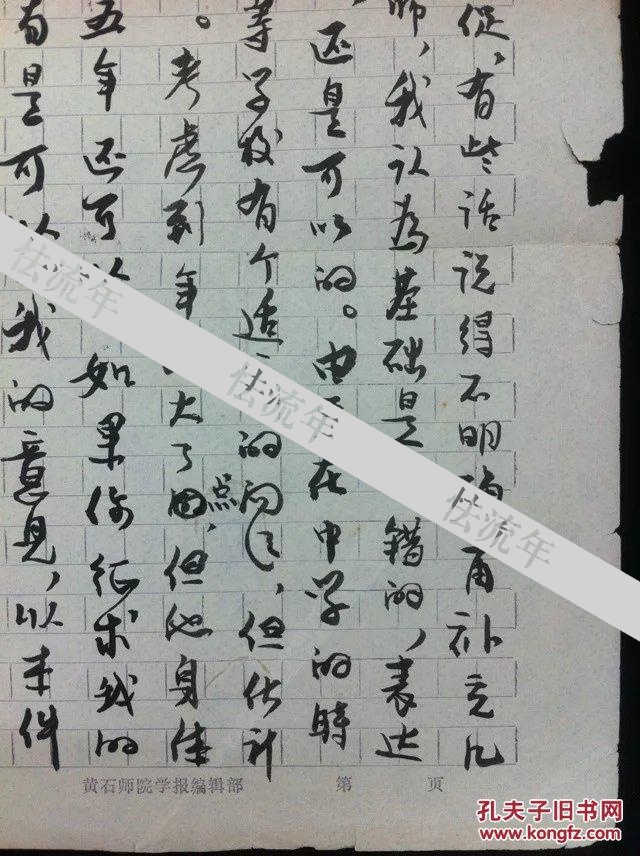 促，有些话说得不明确，再补充几
师，我认为基础是错的，表达
还是可以的。由于在中学的時
等学校有个适应的问题，但估计
。考虑到年大了点，但他身体
五年还可以如果你征求我的
是可以我的意见，以来件
黄石师院学报编辑部 第 页
怯流年
怯流年
怯流年
孔夫子旧书网
www.kongfz.com